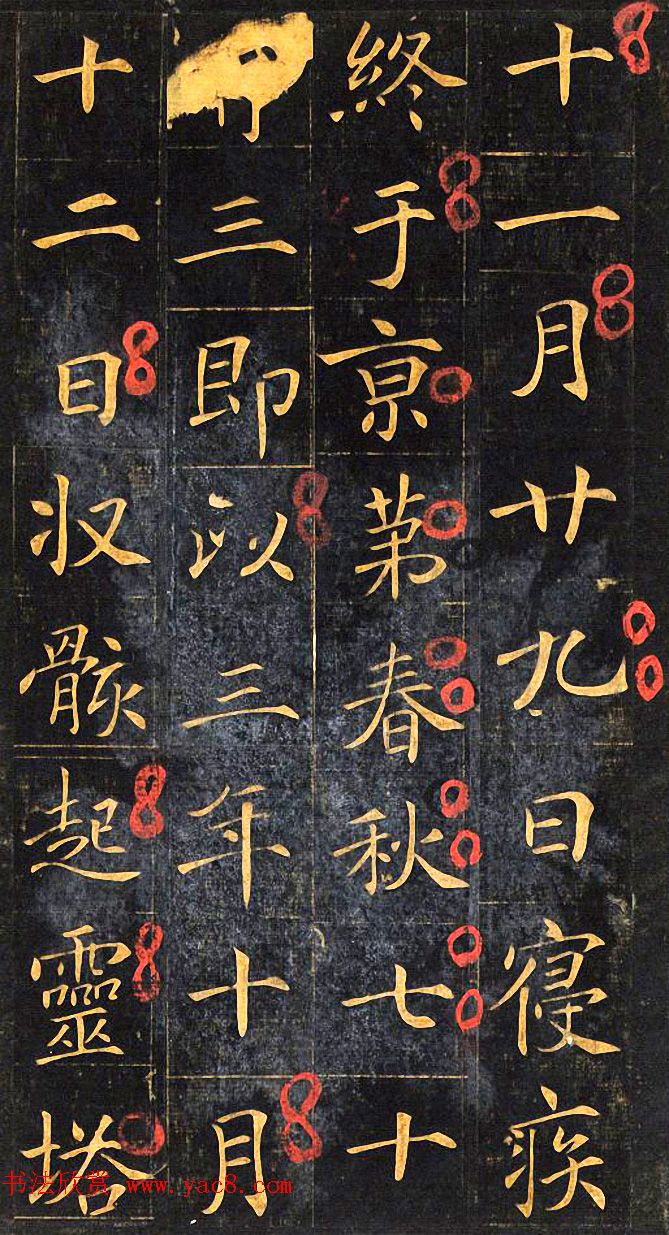 十一月廿九日寑疾
終于京苐春秋七十
三即以三年十月
十二日収骸起靈塔
书法欣赏 www.yac8.com